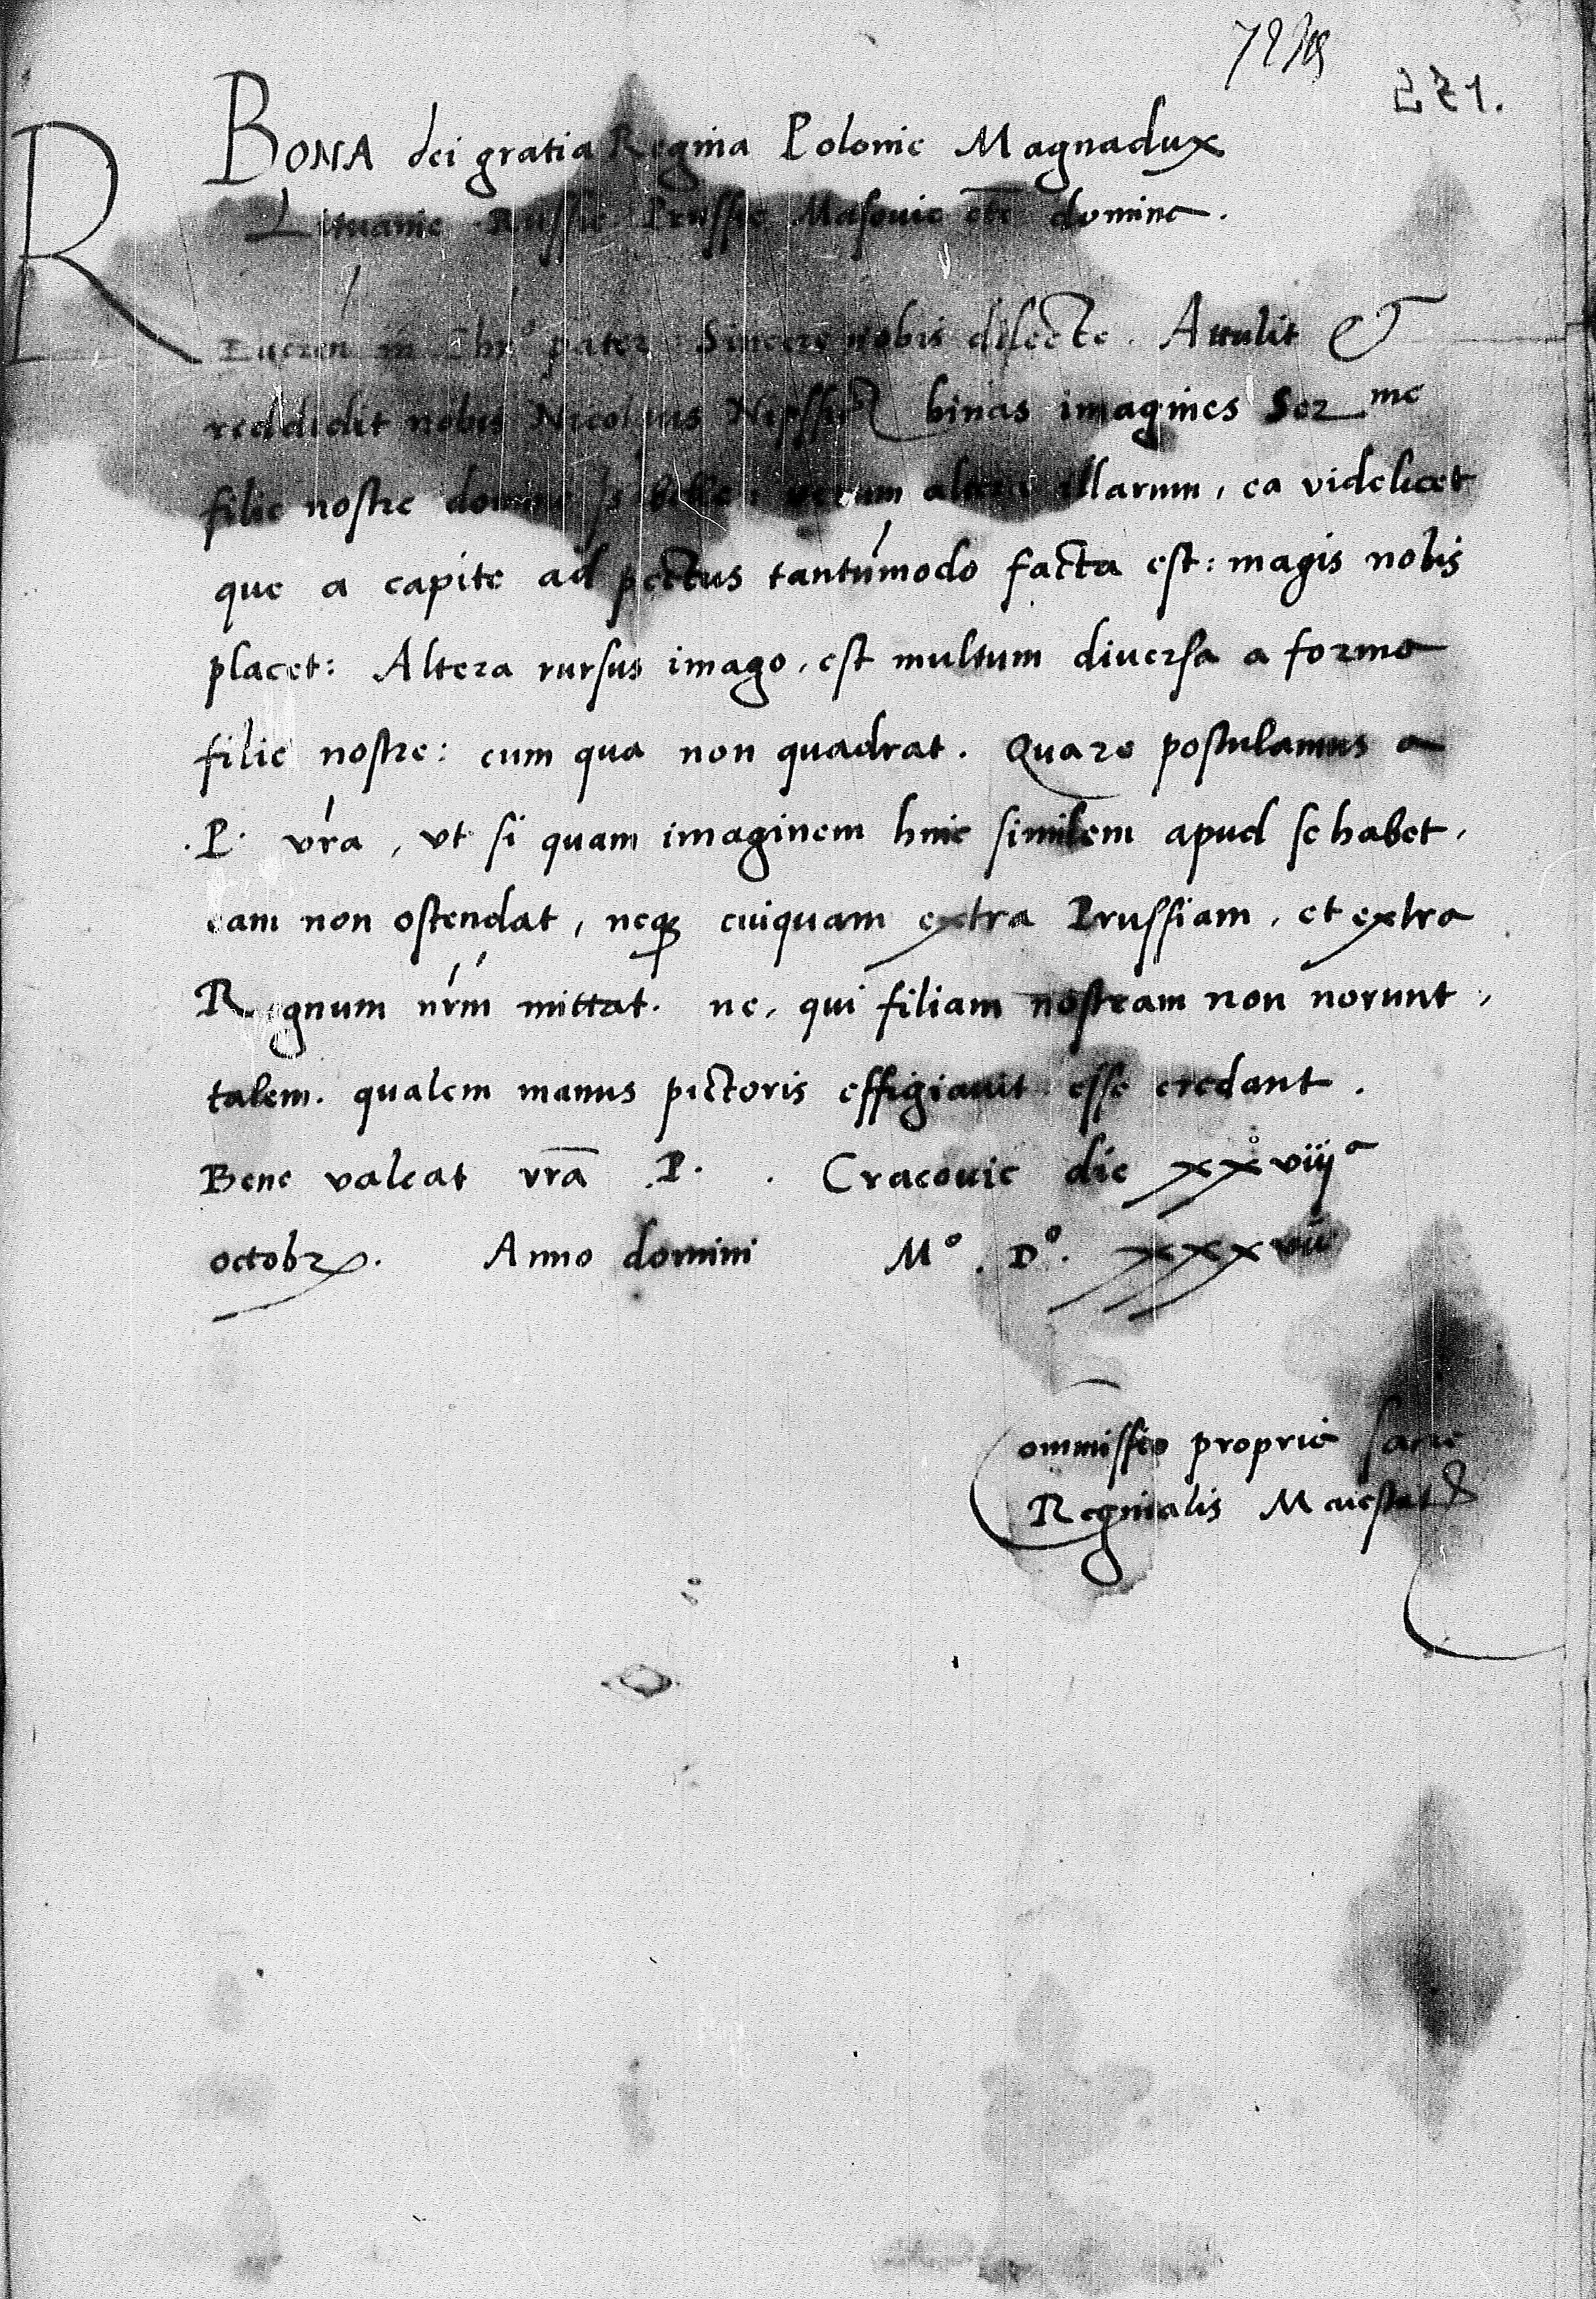 271.
BONA dei gratia Regina Polonie Magnadux
Lituanie Russie Prussie Masovie etc domina.
Reveren in Chro pater Sincere nobis dilecte. Attulit &
reddidit nobis Nicolaus binas imagines Ser me
filie nostre domine Isabelle, verum altera illarum, ea videlicet
que a capite ad pectus tantummodo facta est: magis nobis
placet: Altera rursus imago, est multum diversa a forma
filie nostre: cum qua non quadrat. Quare postulamus a
.P. vra, vt si quam imaginem huic similem apud se habet,
eam non ostendat, neq cuiquam extra Prussiam, et extra
Regnum nrm mittat. ne, qui filiam nostram non norunt,
talem. qualem manus pictoris effigiauit esse credant.
Bene valeat vra .P. Cracouie die xxviija
octobr. Anno domini Mo. Do. xxxvii
Commissio propria sacre
Reginalis Maiestatis